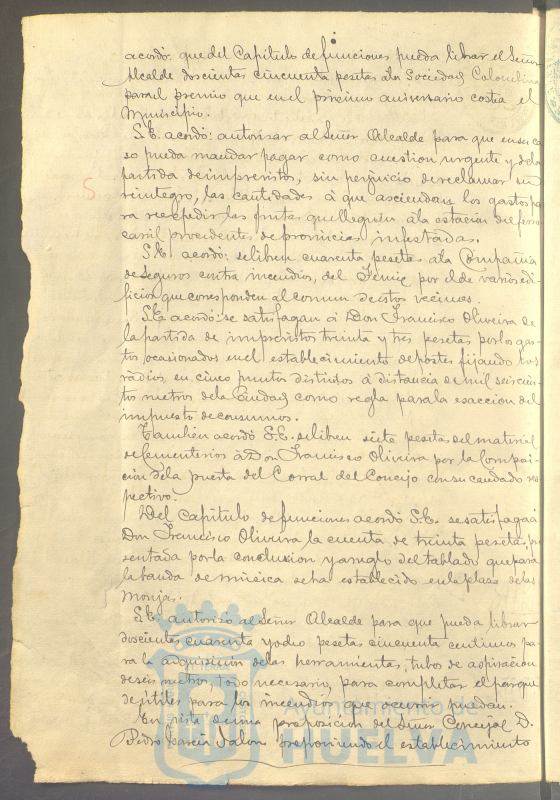 acordó: que del Capitulo de funciones pueda librar el Señor
Alcalde doscientas cincuenta pesetas ála Sociedad Colombina
para el premio que en el próximo aniversario costea el
Municipio.
S.E. acordó: autorizar al Señor Alcalde para que en su ca
so pueda mandar pagar como cuestion urgente y dela
partida de imprevistos, sin perjuicio de reclamar su
reintegro, las cantidades á que asciendan los gastos pa
ra reexpedir las frutas que lleguen á la estacion de ferro
carril procedentes de provincias infestadas.
S.E. acordó: se libren cuarenta pesetas ála Compañia
de seguros contra incendios, del Fénix por el de varios edi
ficios que corresponden al comun de estos vecinos.
S.E. acordó: se satisfagan á Don Francisco Oliveira de
la partida de imprevistos treinta y tres pesetas por los gas
tos ocasionados en el establecimiento de postes fijando los
rádios, en cinco puntos distintos á distancia de mil seiscien
tos metros dela Ciudad como regla para la esaccion del
impuesto de consumos.
Tambien acordó S.E. se libren siete pesetas del material
de Cementerios á Don Francisco Oliveira por la Composi
cion dela puerta del Corral del Concejo con su candado res
pectivo.
Del Capitulo de funciones acordó S.E. se satisfaga á
Don Francisco Oliveira la cuenta de treinta pesetas, pre
sentada por la conclusion y arreglo del tablado que para
la banda de música se ha establecido en la plaza de las
Monjas.
S.E. autorizó al Señor Alcalde para que pueda librar
doscientas cuarenta y ocho pesetas cincuenta centimos pa
ra la adquisicion delas herramientas, tubos de aspiracion
de seis metros, todo necesario, para completar el parque
de útiles para los incendios que ocurrir puedan.
En vista de una proposicion del Señor Concejal D.
Pedro Garcia Jalon proponiendo el establecimiento
Ayuntamiento de
HUELVA